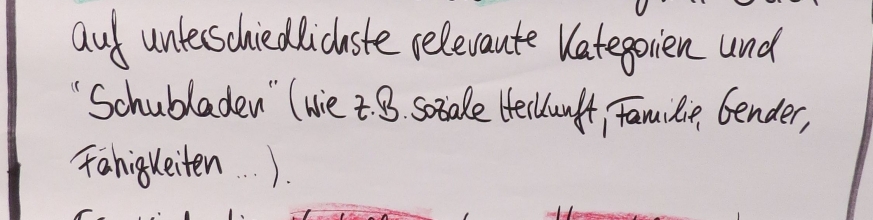 auf unterschiedlichste relevante Kategorien und
"Schubladen" (wie z.B. soziale Herkunft, Familie, Gender,
Fähigkeiten ... ).